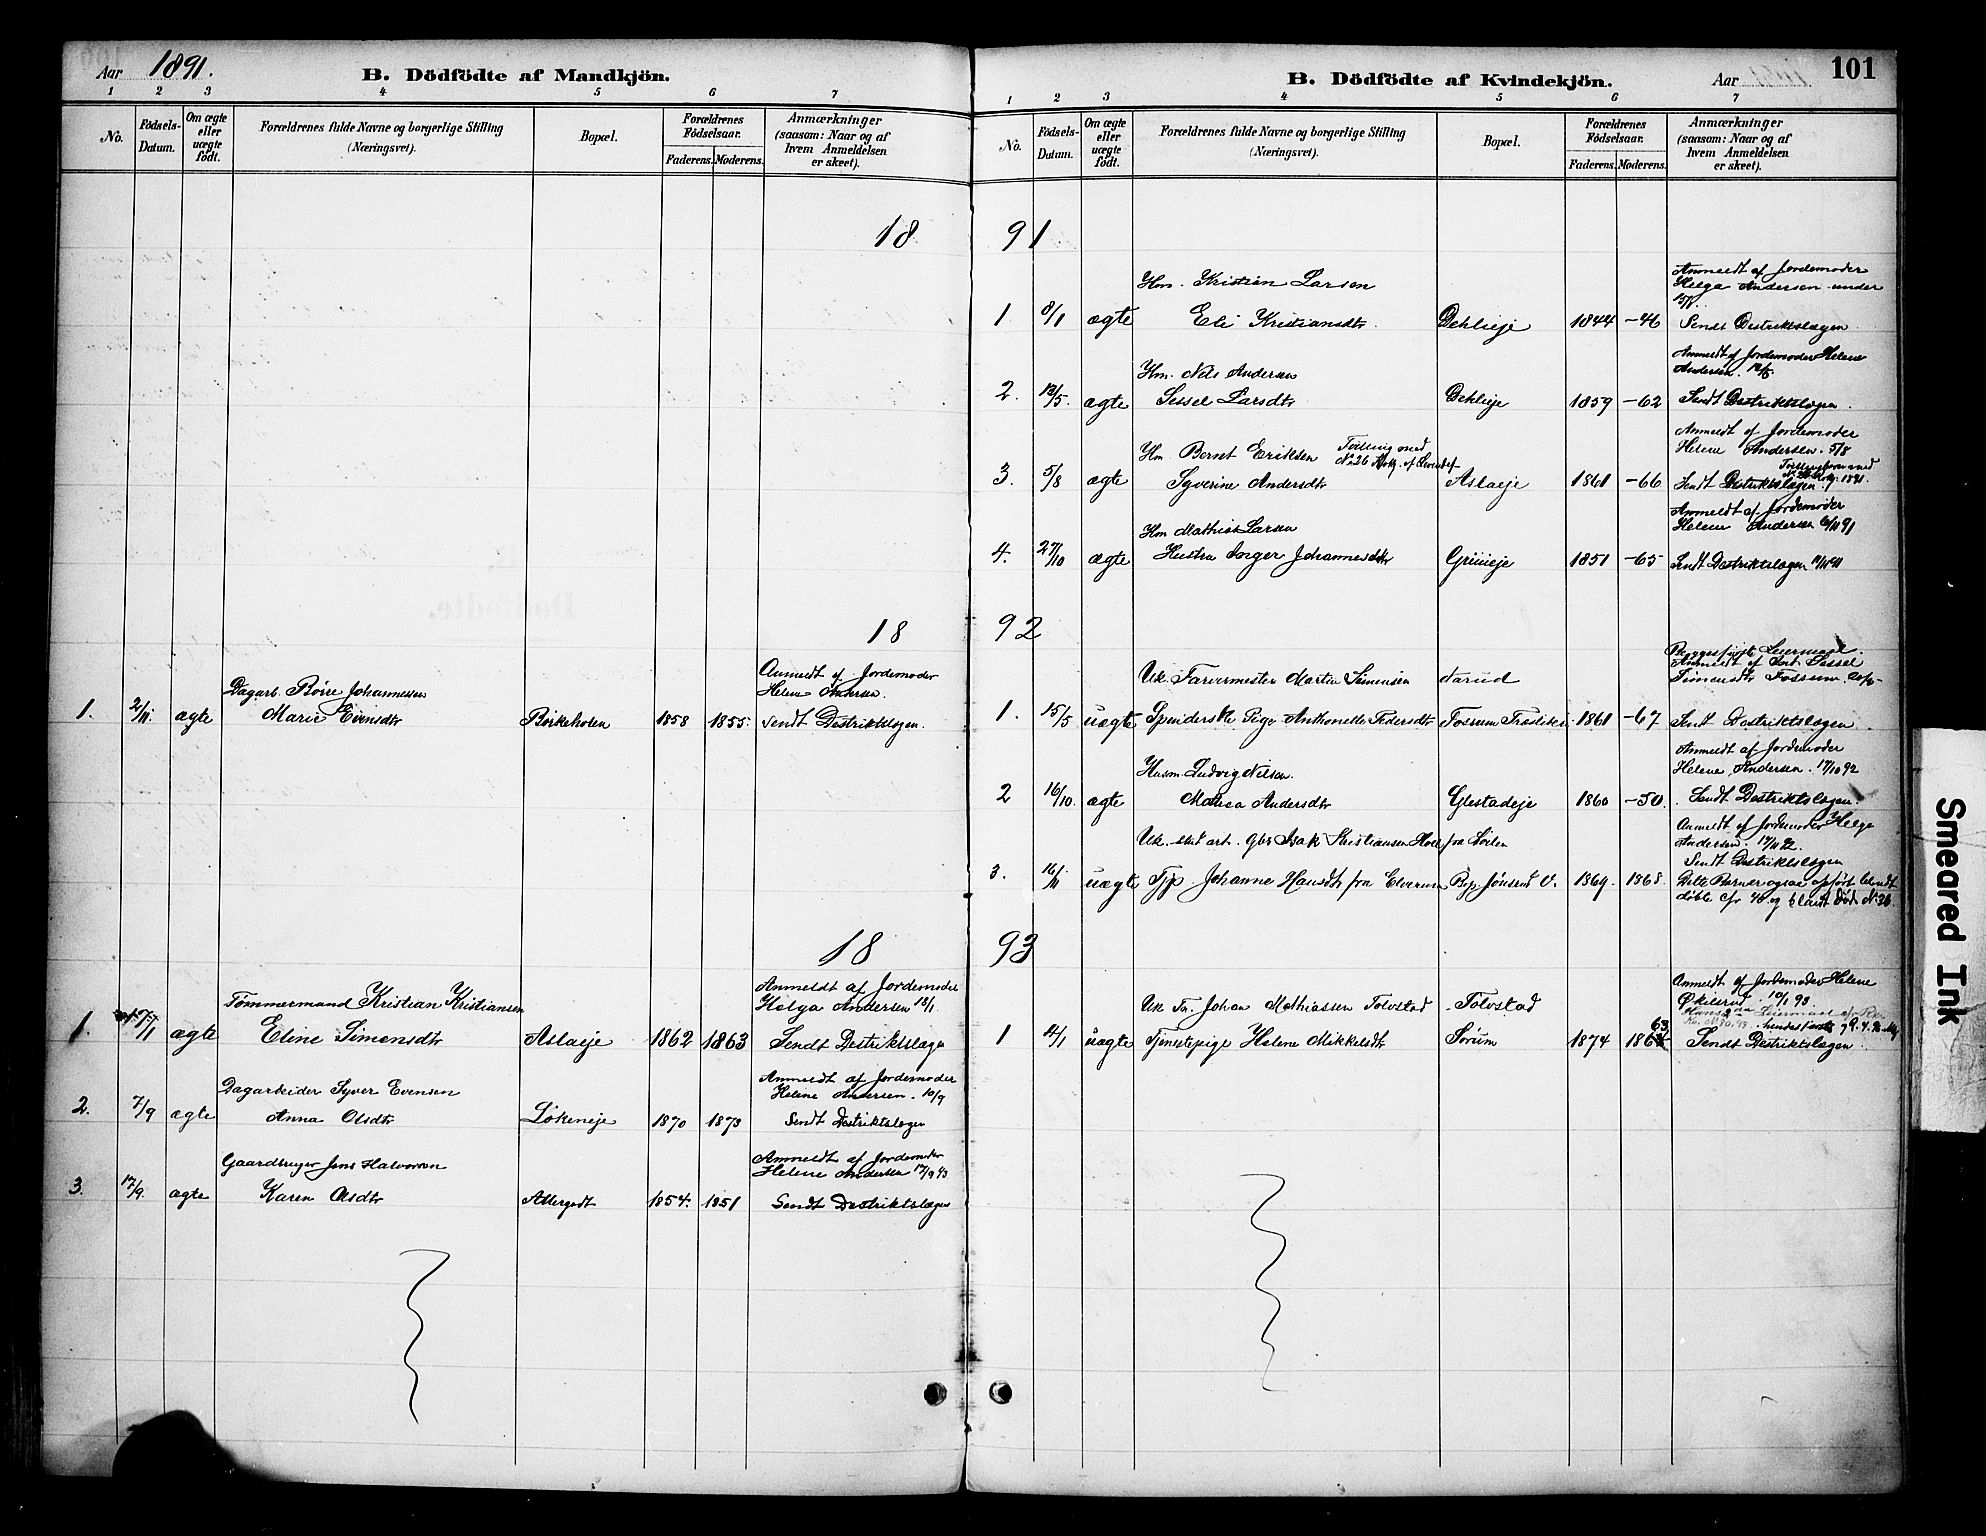 Aar 1891.
B. Dödfödte af Mandkjön.
1 2 3 4 5 6 7
No.
Födsels-Datum.
Om ægte eller uægte födt.
Forældrenes fulde Navne og borgerlige Stilling (Næringsvei).
Bopæl.
Forældrenes Födselsaar.
Faderens. Moderens.
Anmærkninger (saasom: Naar og af hvem Anmeldelsen er skeet).
18
18
Dagarb. Børre Johannessen
Anmeldt af Jordemoder
Helene Andersen.
1. 2/11. ægte Marie Evensdtr Birkeholen 1858 1855. Sendt Distriktslægen.
18
Tømmermand Kristian Kristiansen
Anmeldt af Jordemoder
Helga Andersen 18/1
1. 17/1 ægte Eline Simensdtr Aslaeje 1862 1863 Sendt Distriktslægen
Dagarbeider Syver Evensen
Anmeldt af Jordemoder
Helene Andersen. 10/9
2. 7/9 ægte Anna Olsdtr Løkeneje 1870 1873 Sendt Distriktslægen
Gaardbruger Jens Halvorsen
Anmeldt af Jordemoder
Helene Andersen 17/9 93
3. 17/9. ægte Karen Olsdtr Allergodt 1854. 1851 Sendt Distriktslægen
B. Dödfödte af Kvindekjön.
Aar
101
1 2 3 4 5 6 7
No.
Födsels-Datum.
Om ægte eller uægte födt.
Forældrenes fulde Navne og borgerlige Stilling (Næringsvei).
Bopæl.
Forældrenes Födselsaar.
Faderens. Moderens.
Anmærkninger (saasom: Naar og af hvem Anmeldelsen er skeet).
91
Hm. Kristian Larsen
Anmeldt af Jordemoder
Helga Andersen under
1 8/1 ægte Eli Kristiansdtr. Dehlieje 1844 -46 Sendt Distriktslægen
Hm. Nils Andersen
Anmeldt af Jordemoder Helene
Andersen.
2. 12/5. ægte Sessel Larsdtr Dehlieje 1859 -62 Sendt Distriktslægen.
Hm. Bernt Eriksen Tvilling med
No 26
Anmeldt af Jordemoder
Helene Andersen. 5/8
3. 5/8 ægte Syverine Andersdtr Aslaeje 1861 -66 Sendt Distriktslægen. 1891.
Hm Mathias Larsen
Anmeldt af Jordemoder
Helene Andersen 6/11 91
4. 27/10 ægte Hustru Inger Johannesdtr 1851 -65 Sendt Distriktslægen 11/11 91
92
Uk. Farvermester Martin Simensen Narud
Anmeldt af Sessel
Simensdtr Fossum.
1. 15/5 uægte Pige Anthonette Pedersdtr Fossum 1861 -67 Sendt Distriktslægen
Husm. Ludvig Nilsen.
Anmeldt af Jordemoder
Helene Andersen. 17/10 92
2 16/10. ægte Mathea Andersdtr Glestadeje 1860 -50. Sendt Distriktslægen.
Uk. Isak Kristiansen
Anmeldt af Jordemoder Helga
Andersen.
Sendt Distriktslægen
3. 16/11 uægte Johanne Hansdtr fra Elverum 1869. 1868.
93
Uk. Johan Mathiassen Tolvstad Tolvstad
Anmeldt af Jordemoder Helene
10/1 93
1 4/1 uægte Tjenestepige Helene Mikkelsdtr Sørum 1874 1863 Sendt Distriktslægen.
Smeared Ink